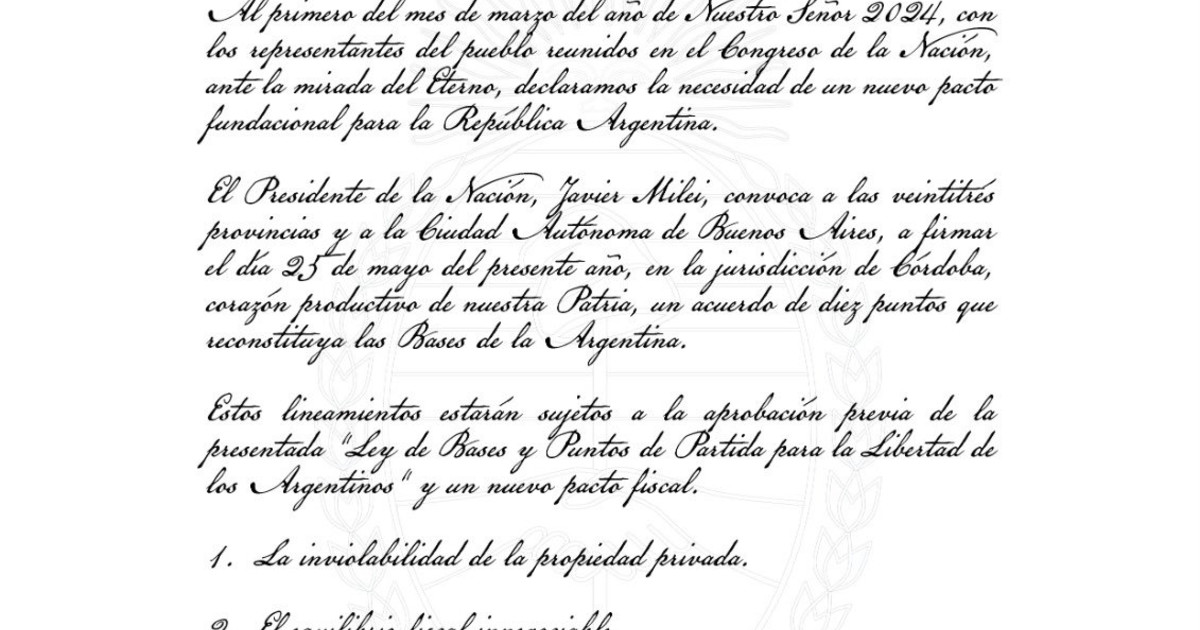 Al primero del mes de marzo del año de Nuestro Señor 2024, con
los representantes del pueblo reunidos en el Congreso de la Nación,
ante la mirada del Eterno, declaramos la necesidad de un nuevo pacto
fundacional para la República Argentina.
El Presidente de la Nación, Javier Milei, convoca a las veintitrés
provincias y a la Ciudad Autónoma de Buenos Aires, a firmar
el día 25 de mayo del presente año, en la jurisdicción de Córdoba,
corazón productivo de nuestra Patria, un acuerdo de diez puntos que
reconstituya las Bases de la Argentina.
Estos lineamientos estarán sujetos a la aprobación previa de la
presentada "Ley de Bases y Puntos de Partida para la Libertad de
los Argentinos" y un nuevo pacto fiscal.
1. La inviolabilidad de la propiedad privada.
2. El equilibrio fiscal innegociable.